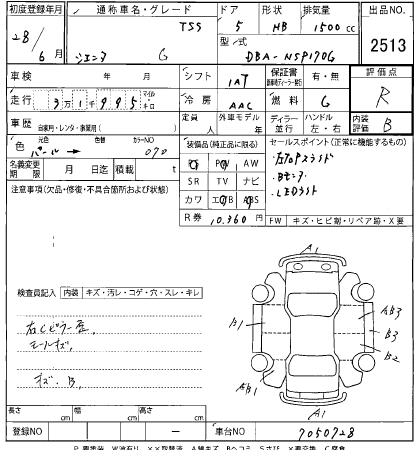 初度登録年月 通称車名・グレード ドア 形状 排気量 出品NO.
28/6月 シエンタ G TSS 5 HB 1500cc 2513
型式 DBA-NSP170G
車検 年 月 シフト IAT 保証書 有・無 評価点
走行 マイル キロ 冷房 AAC 燃料 G R
車歴 自家用・レンタ・事業用( ) 定員 人 外車モデル 年 ディーラー 並行 ハンドル 左・右 内装評価 B
色 元色 パール 色替 カラーNO 070 装備品(純正品に限る) セールスポイント(正常に機能するもの)
PS PW AW
・Bモニタ
・LEDライト
名義変更期限 月 日迄 積載 t SR TV ナビ
注意事項(欠品・修復・不具合箇所および状態) カワ エアB ABS
R券 10,360円 FW キズ・ヒビ割・リペア跡・X要
検査員記入 内装 キズ・汚レ・コゲ・穴・スレ・キレ
右Cピラー歪
モールキズ、
キズ、B、
A1
B1
AB1
AB3
B3
B2
A1
長さ cm 幅 cm 高さ cm
登録NO ― 車台NO 7050728